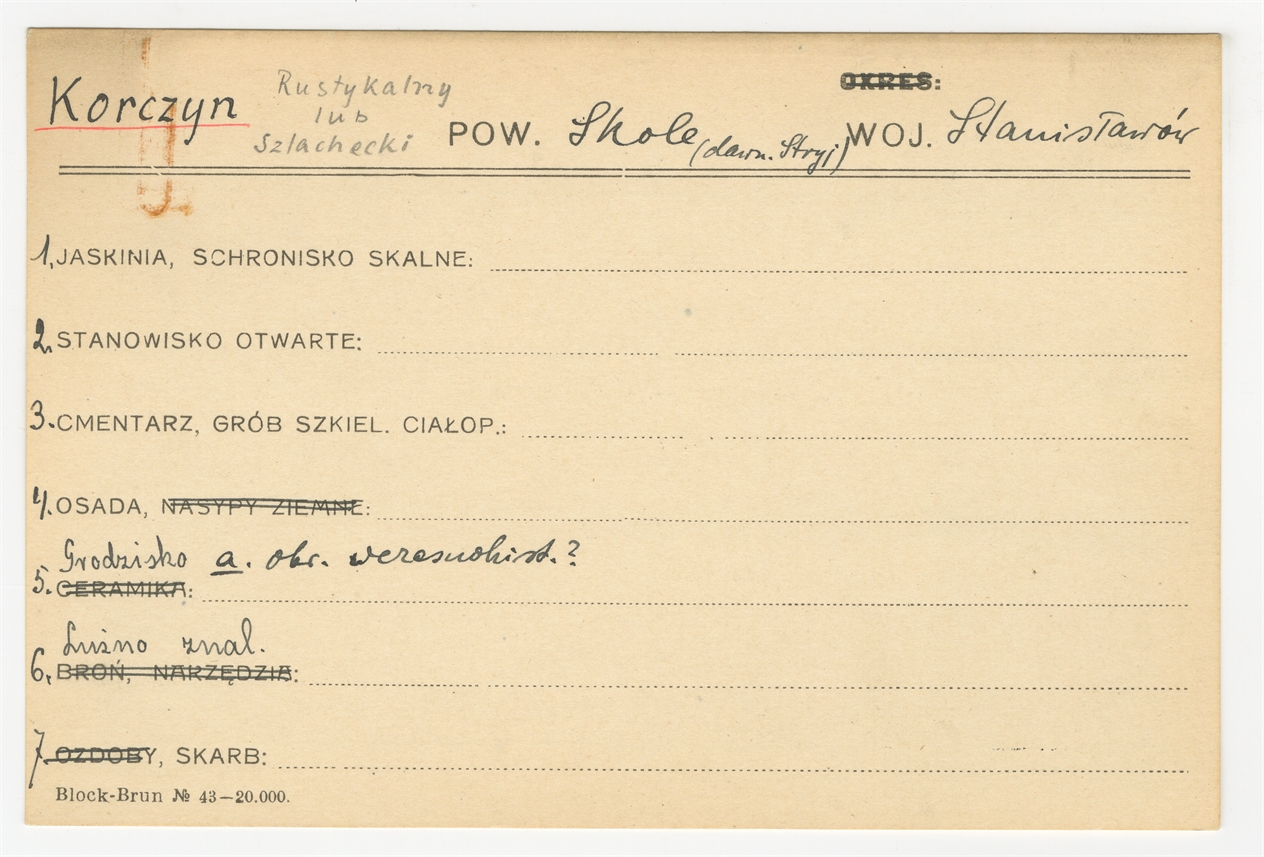 OKRES:
Korczyn Rustykalny lub Szlachecki POW. Skole (dawn. Stryj) WOJ. Stanisławów
1. JASKINIA, SCHRONISKO SKALNE:
2. STANOWISKO OTWARTE:
3. CMENTARZ, GRÓB SZKIEL. CIAŁOP.:
4. OSADA, NASYPY ZIEMNE:
Grodzisko a. obr. wczesnohist.?
5. CERAMIKA:
Luźno znal.
6. BROŃ, NARZĘDZIA:
7. OZDOBY, SKARB:
Block-Brun № 43—20.000.